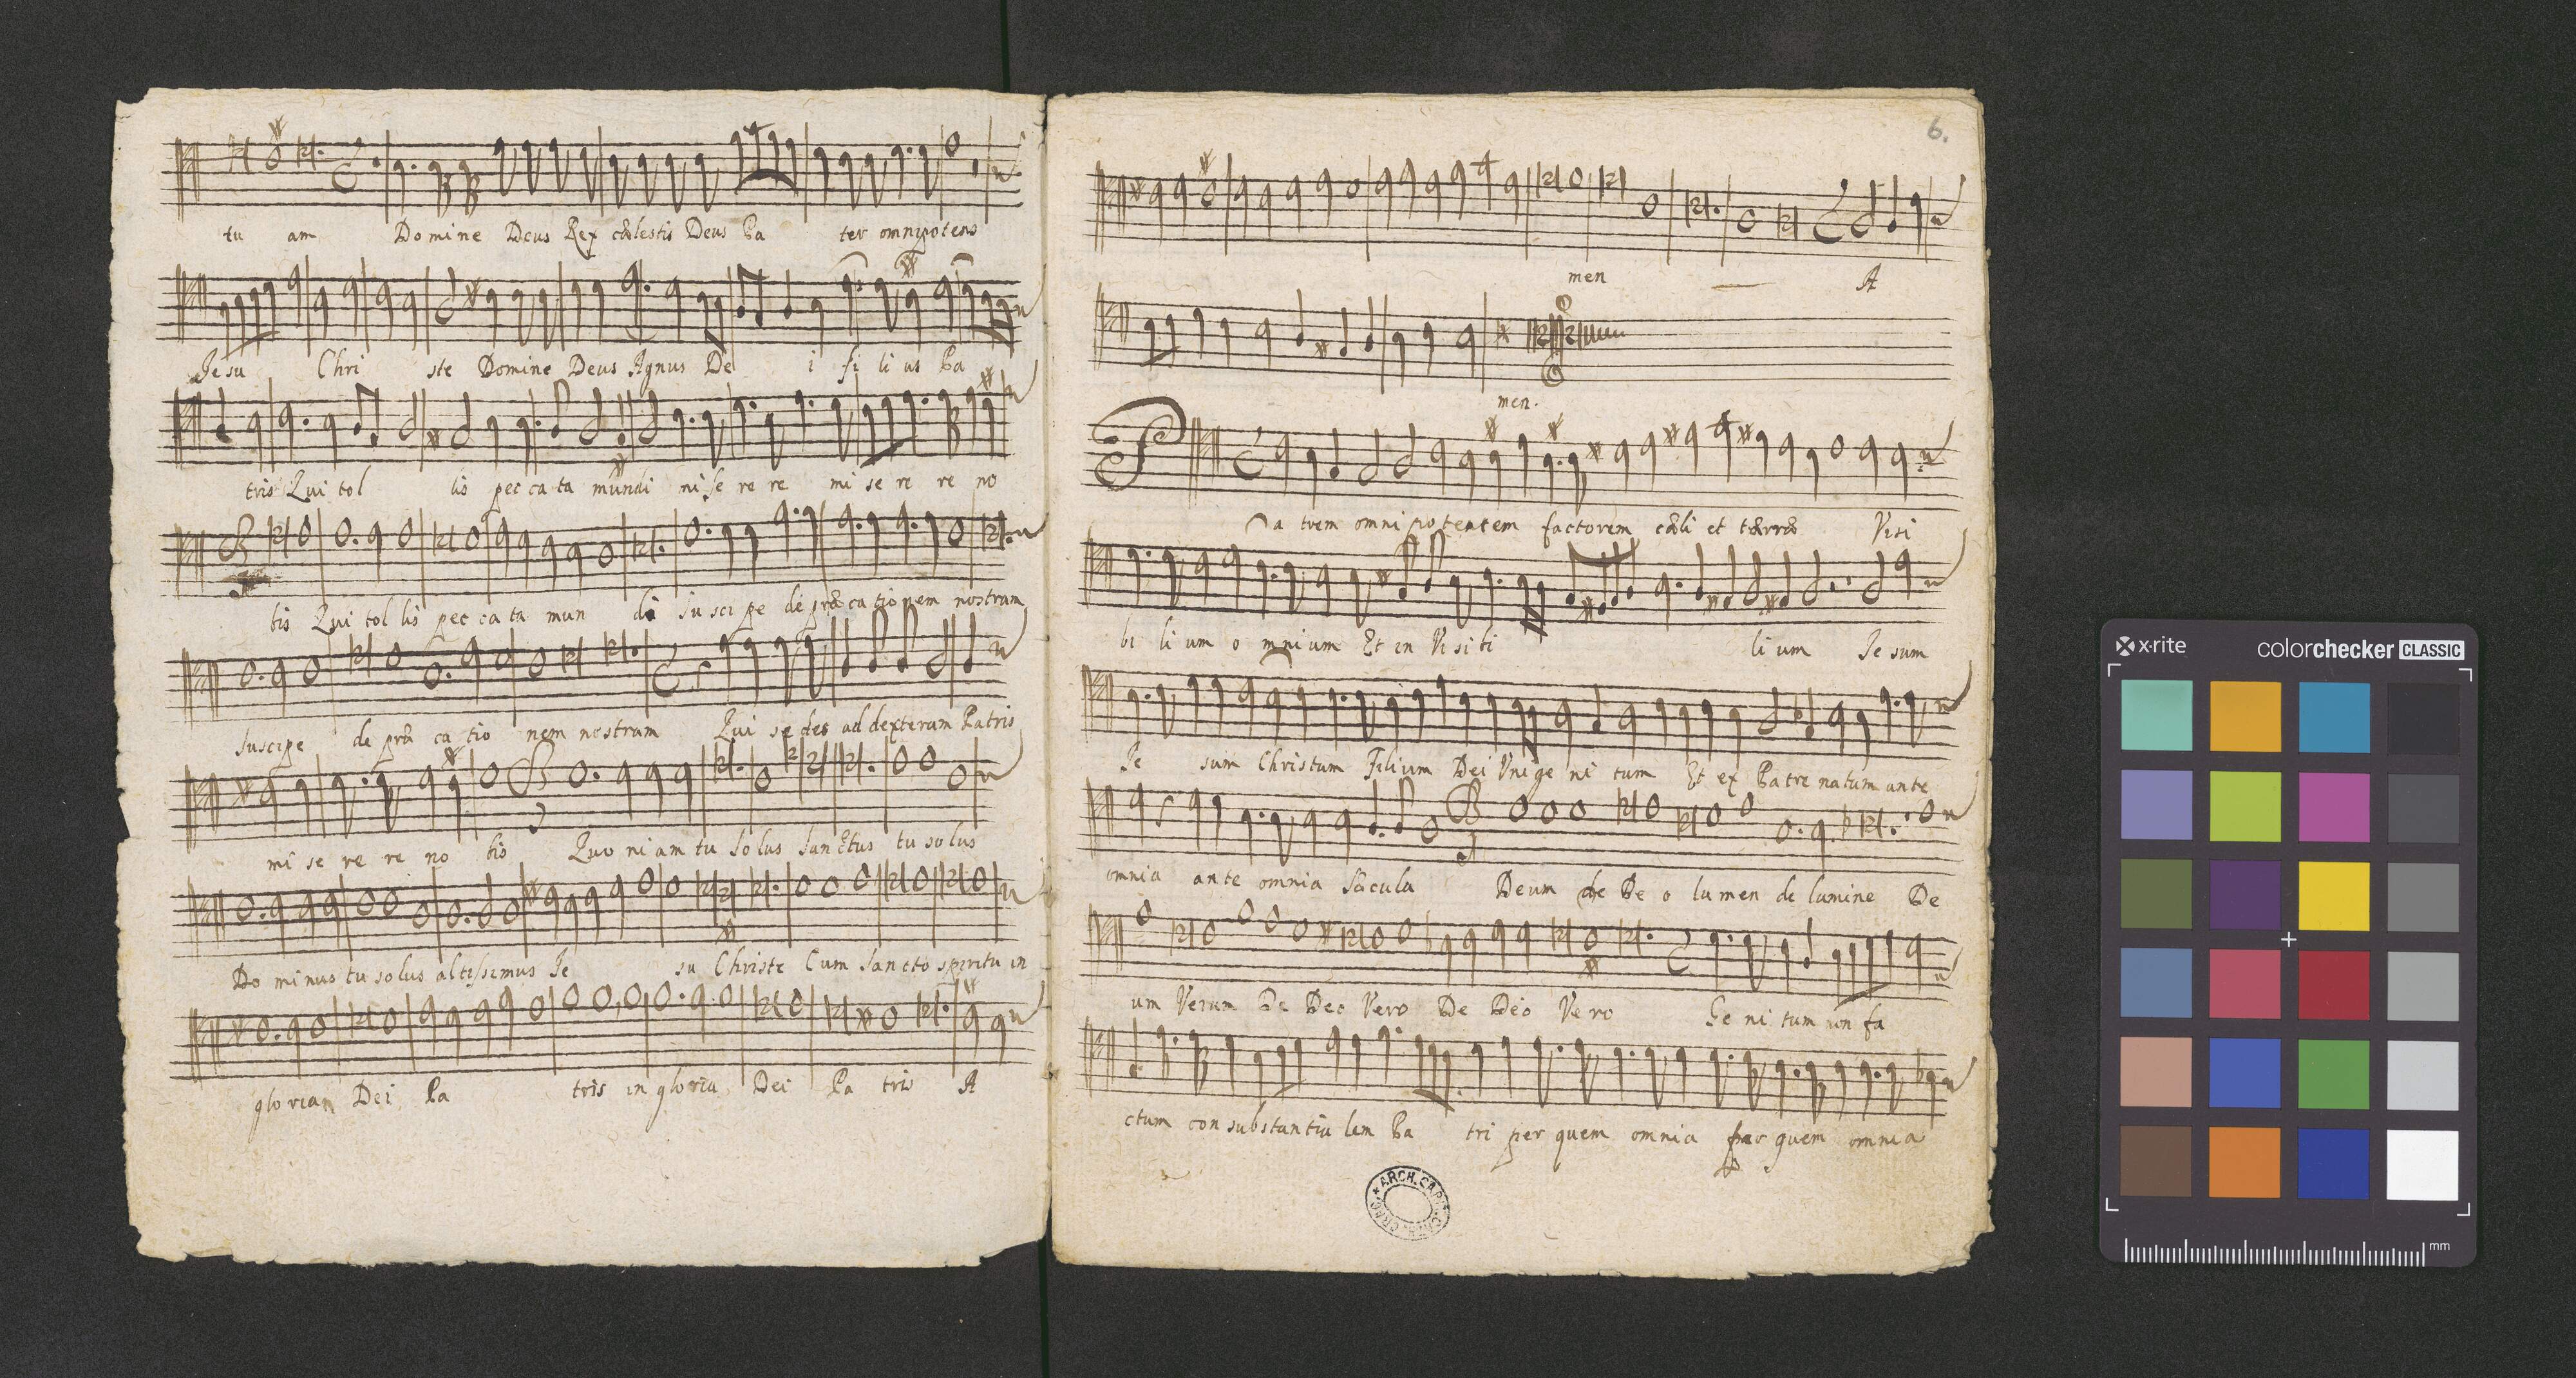 tu am Domine Deus Rex cælestis Deus Pa ter omnipotens
Jesu Chri ste Domine Deus Agnus De i fi li us Pa
tris Qui tol lis pec ca ta mundi mi se re re mi se re re no
bis Qui tol lis pec ca ta mun di su sci pe de præ ca tio nem nostram
suscipe de præ ca tio nem nostram Qui se des ad dexteram Patris
mi se re re no bis Quo ni am tu solus sanctus tu solus
Do minus tu solus altissimus Je su Christe Cum sancto spiritu in
gloriam Dei Pa tris in gloria Dei Pa tris A
6.
men A
men.
Pa trem omni potentem factorem cæli et tærræ Visi
bi li um o mnium Et in Vi si bi li um Je sum
Je sum Christum Filium Dei Vni ge ni tum Et ex Patre natum ante
omnia ante omnia sæcula Deum de De o lu men de lumine De
um Verum De Deo Vero De Deo Ve ro Ge ni tum non fa
ctum con substantia lem Pa tri per quem omnia per quem omnia
ARCH. CAP.
x-rite colorchecker CLASSIC
mm